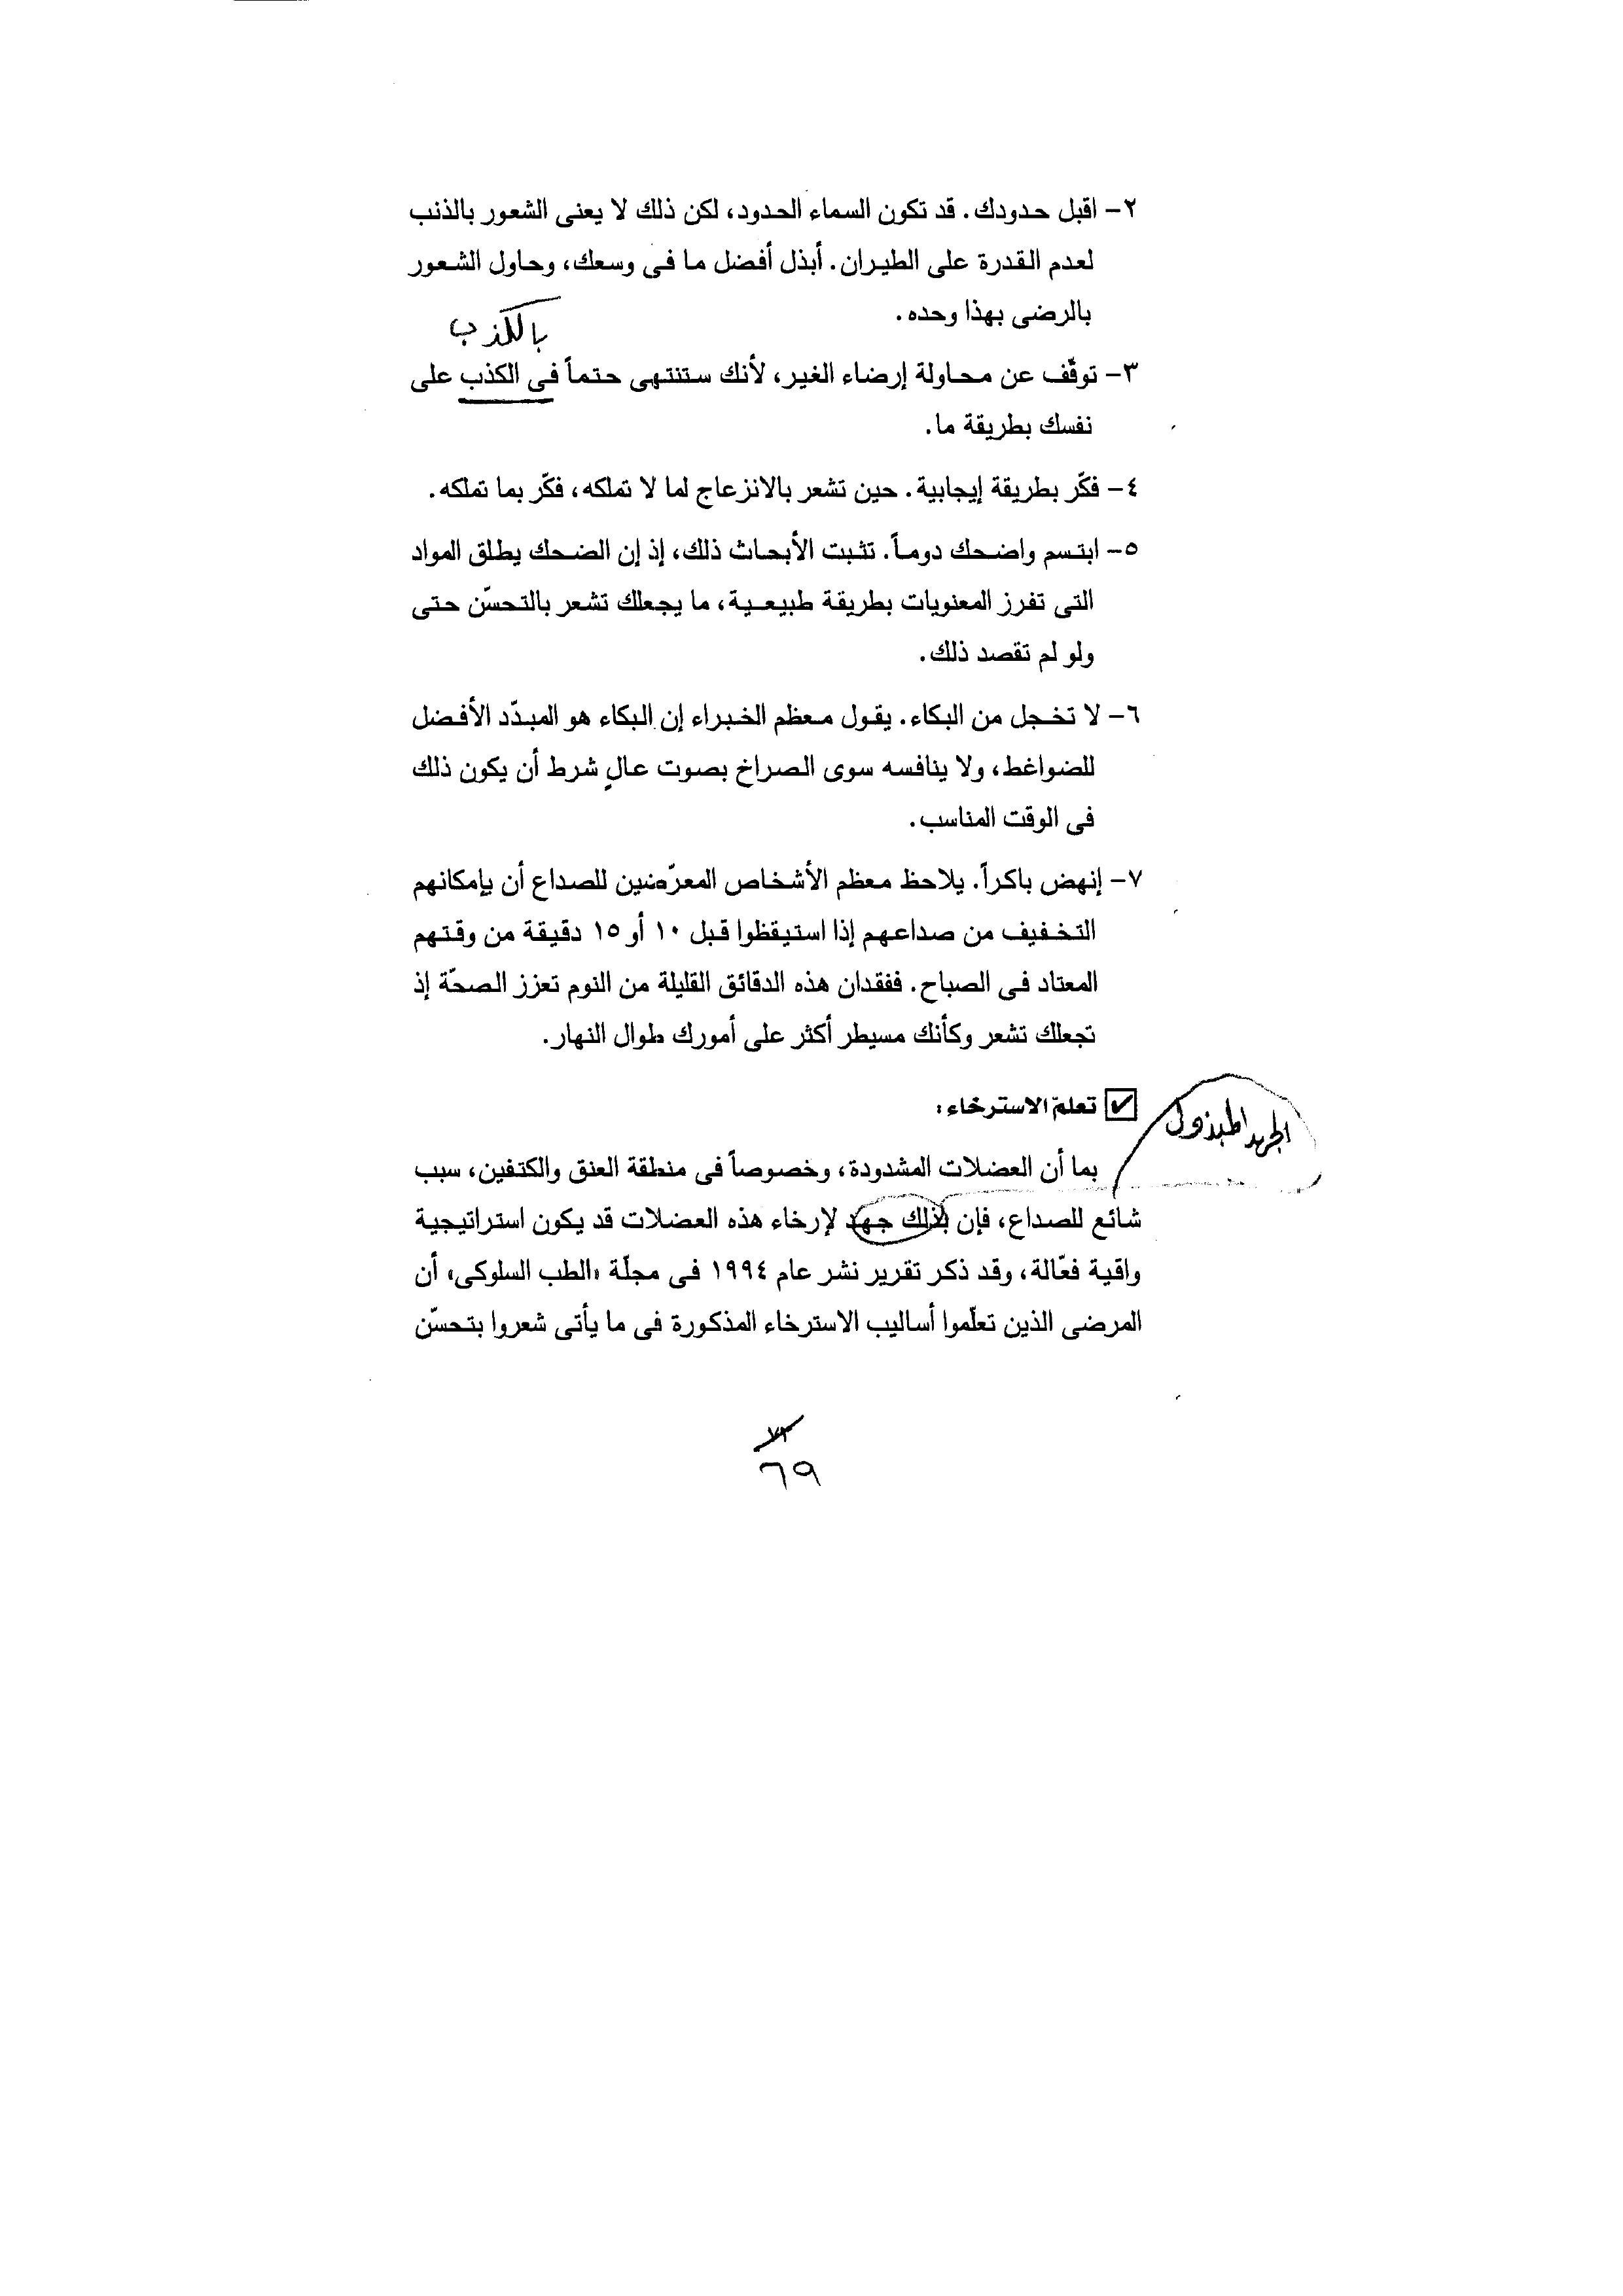 ٢- اقبل حدودك. قد تكون السماء الحدود، لكن ذلك لا يعنى الشعور بالذنب
لعدم القدرة على الطيران. أبذل أفضل ما فى وسعك، وحاول الشعور
بالرضى بهذا وحده.
بالكذب
٣- توقّف عن محاولة إرضاء الغير، لأنك ستنتهى حتماً فى الكذب على
نفسك بطريقة ما.
٤- فكّر بطريقة إيجابية. حين تشعر بالانزعاج لما لا تملكه، فكّر بما تملكه.
٥- ابتسم واضحك دوماً. تثبت الأبحاث ذلك، إذ إن الضحك يطلق المواد
التى تفرز المعنويات بطريقة طبيعية، ما يجعلك تشعر بالتحسّن حتى
ولو لم تقصد ذلك.
٦- لا تخجل من البكاء. يقول معظم الخبراء إن البكاء هو المبدّد الأفضل
للضواغط، ولا ينافسه سوى الصراخ بصوت عالٍ شرط أن يكون ذلك
فى الوقت المناسب.
٧- إنهض باكراً. يلاحظ معظم الأشخاص المعرّضين للصداع أن بإمكانهم
التخفيف من صداعهم إذا استيقظوا قبل ١٠ أو ١٥ دقيقة من وقتهم
المعتاد فى الصباح. ففقدان هذه الدقائق القليلة من النوم تعزز الصحّة إذ
تجعلك تشعر وكأنك مسيطر أكثر على أمورك طوال النهار.
☑ تعلمّ الاسترخاء:
الجهد المبذول
بما أن العضلات المشدودة، وخصوصاً فى منطقة العنق والكتفين، سبب
شائع للصداع، فإن بذلك جهد لإرخاء هذه العضلات قد يكون استراتيجية
واقية فعّالة، وقد ذكر تقرير نشر عام ١٩٩٤ فى مجلّة «الطب السلوكى» أن
المرضى الذين تعلّموا أساليب الاسترخاء المذكورة فى ما يأتى شعروا بتحسّن
٧٣
٦٩